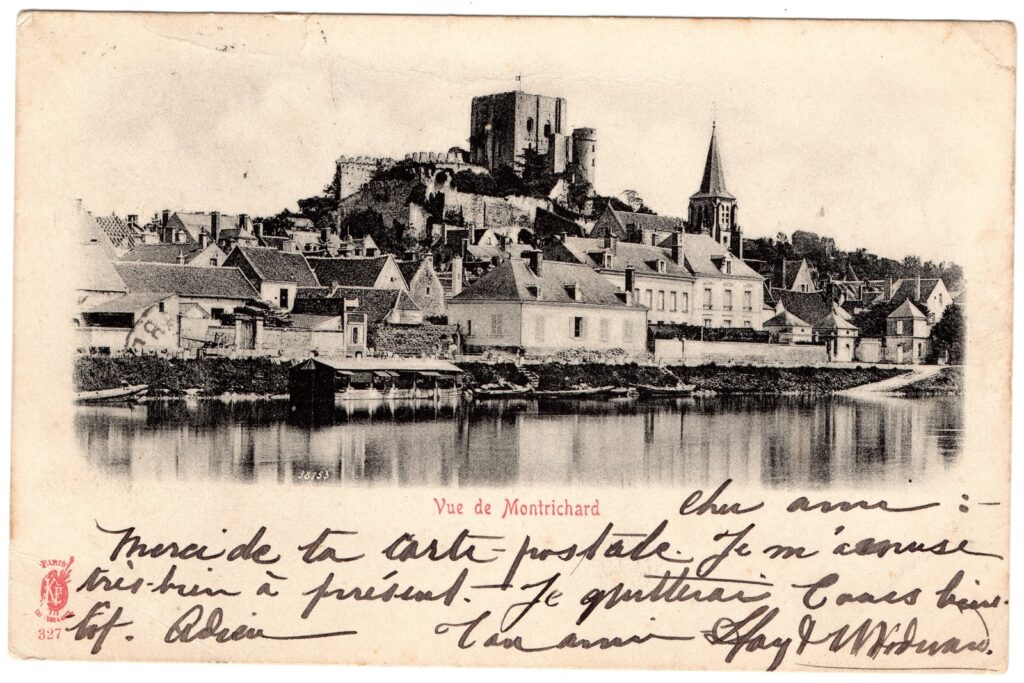 18755
Vue de Montrichard
Cher ami :-
Merci de ta carte-postale. Je m'amuse
très-bien à présent. Je quitterai Tours bien-
tôt. Adieu Ton ami
PARIS
327